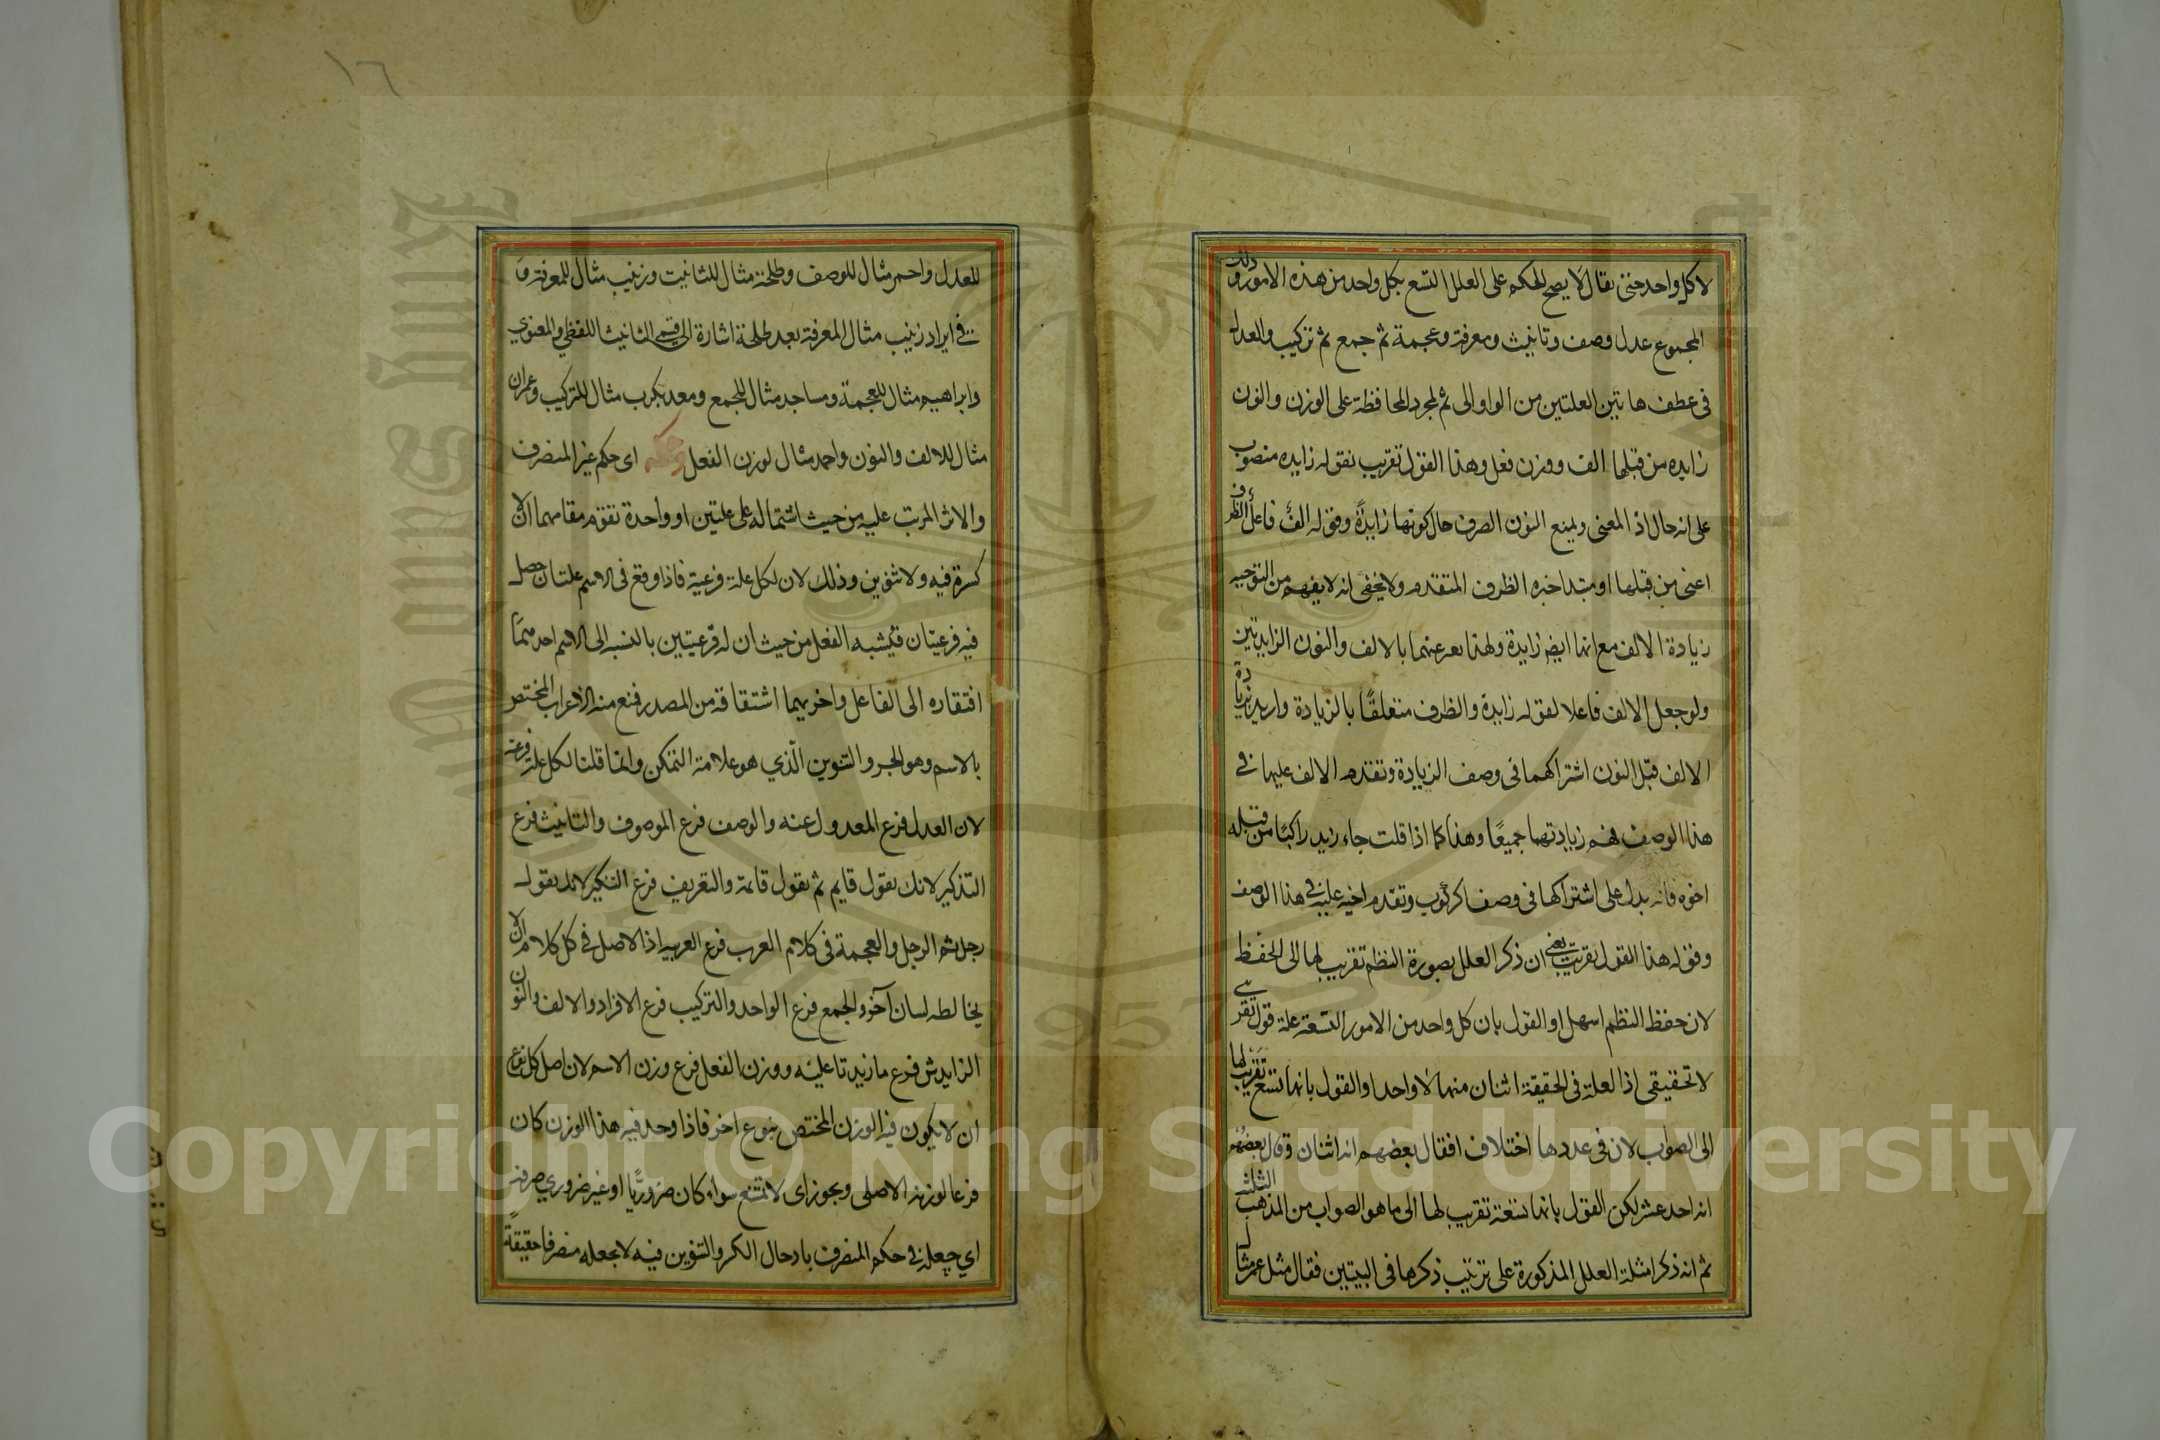 ١٦
لا كل واحد حتى يقال لا يصح الحكم على العلل التسع بكل واحد من هذه الامور وذلك
المجموع عدل وصف وتانيث ومعرفة وعجمة ثم جمع ثم تركيب والعدل
فى عطف هاتين العلتين من الواو الى ثم لمجرد المحافظة على الوزن والنون
زايده من قبلها الف ووزن فعل وهذا القول تقريب نقوله زايده منصوب
على انه حال اذ المعنى ويمنع النون الصرف حال كونها زايدة وقوله الف فاعل الظرف
اعنى من قبلها او مبتدا خبره الظرف المتقدم ولا يخفى انه لا يفهم من التوجيه
زيادة الالف مع انها ايضا زايدة ولهذا يعبر عنهما بالالف والنون الزايدتين
ولو جعل الالف فاعلا لقوله زايدة والظرف متعلقا بالزيادة واريد بزيادة
الالف قبل النون اشتراكهما فى وصف الزيادة وتقدم الالف عليها فى
هذا الوصف فهم زيادتهما جميعا وهذا كما اذا قلت جاء زيد راكبا من قبله
اخوه فانه يدل على اشتراكهما فى وصف الركوب وتقدم اخيه عليه فى هذا الوصف
وقوله هذا القول تقريب يعنى ان ذكر العلل بصورة النظم تقريب لها الى الحفظ
لان حفظ النظم اسهل او القول بان كل واحد من الامور التسعة علة قول تقريبى
لا تحقيقى اذ العلة فى الحقيقة اثنان منها لا واحد او القول بانها تسع تقريب لها
الى الصواب لان فى عددها اختلاف افقال بعضهم انه اثنان وقال بعضهم
انه احد عشر لكن القول بانها تسعة تقريب لها الى ما هو الصواب من المذهب الثلثة
ثم انه ذكر امثلة العلل المذكورة على ترتيب ذكرها فى البيتين فقال مثل عمر مثال
للعدل واحمر مثال للوصف وطلحة مثال للتانيث وزينب مثال للمعرفة و
فى ايراد زينب مثال المعرفة بعد طلحة اشارة الى قسمى التانيث اللفظي والمعنوي
وابراهيم مثال للعجمة ومساجد مثال للجمع ومعديكرب مثال للتركيب وعمران
مثال للالف والنون واحمد مثال لوزن الفعل وحكمه اى حكم غير المنصرف
والاثر المرتب عليه من حيث اشتماله على علتين او واحدة تقوم مقامهما ان لا
كسرة فيه ولا تنوين وذلك لان لكل علة فرعية فاذا وقع فى الاسم علتان حصل
فيه فرعيتان فيشبه الفعل من حيث ان له فرعيتين بالنسبه الى الاسم احدهما
افتقاره الى الفاعل واخريهما اشتقاقه من المصدر فمنع منه الاعراب المختص
بالاسم وهو الجر والتنوين الّذي هو علامة التمكن وانما قلنا لكل علة فرعية
لان العدل فرع المعدول عنه والوصف فرع الموصوف والتانيث فرع
التذكير لانك تقول قايم ثم تقول قايمة والتعريف فرع التنكير لانك تقول
رجل ثم الرجل والعجمة فى كلام العرب فرع العربيه اذ الاصل فى كل كلام ان لا
يخالطه لسان آخر والجمع فرع الواحد والتركيب فرع الافراد والالف والنون
الزايدتين فرع ما زيدتا عليه ووزن الفعل فرع وزن الاسم لان اصل كل نوع
ان لا يكون فيه الوزن المختص بنوع اخر فاذا وجد فيه هذا الوزن كان
فرعا لوزنه الاصلى ويجوز اى لا يمتنع سواء كان ضروريّا او غير ضروري صرفه
اي جعله فى حكم المنصرف بادخال الكسر والتنوين فيه لا جعله منصرفا حقيقة
King Saud University
1957
Copyright © King Saud University